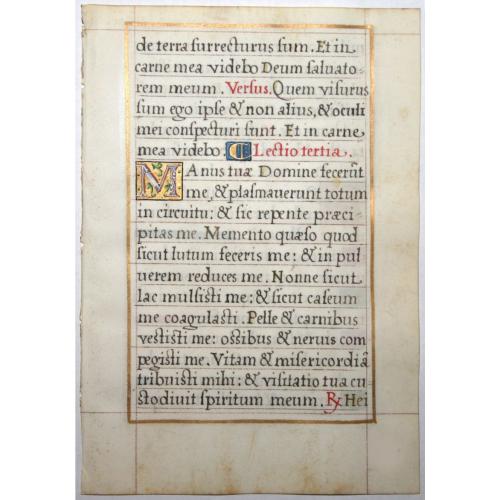 de terra surrecturus sum. Et in
carne mea videbo Deum saluato-
rem meum. Versus. Quem visurus
sum ego ipse & non alius, & oculi
mei conspecturi sunt. Et in carne
mea videbo. Lectio tertia.
MAnus tuæ Domine fecerũt
me, & plasmauerunt totum
in circuitu: & sic repente præci-
pitas me. Memento quæso quod
sicut lutum feceris me: & in pul
uerem reduces me. Nonne sicut
lac mulsisti me: & sicut caseum
me coagulasti. Pelle & carnibus
vestisti me: ossibus & neruis com
pegisti me. Vitam & misericordiã
tribuisti mihi: & visitatio tua cu
stodiuit spiritum meum. ℞ Hei